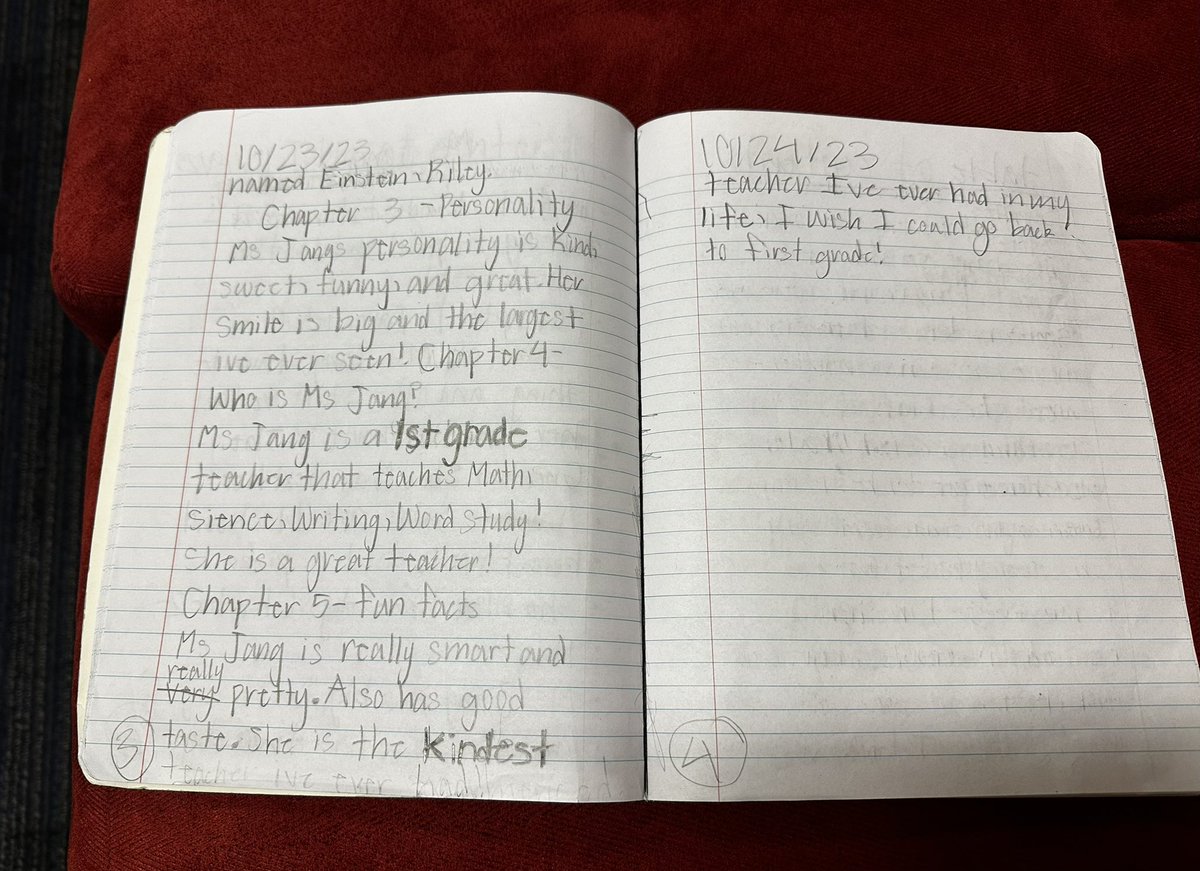 10/23/23
named Einstein, Riley.
Chapter 3 - Personality
Ms Jangs personality is kind,
sweet, funny, and great. Her
smile is big and the largest
ive ever seen! Chapter 4-
Who is Ms Jang?
Ms Jang is a 1st grade
teacher that teaches Math,
Sience, Writing, Word study!
She is a great teacher!
Chapter 5- fun facts
Ms Jang is really smart and
really
very pretty. Also has good
taste. She is the kindest
teacher ive ever
3
10/24/23
teacher I've ever had in my
life, I wish I could go back
to first grade!
4